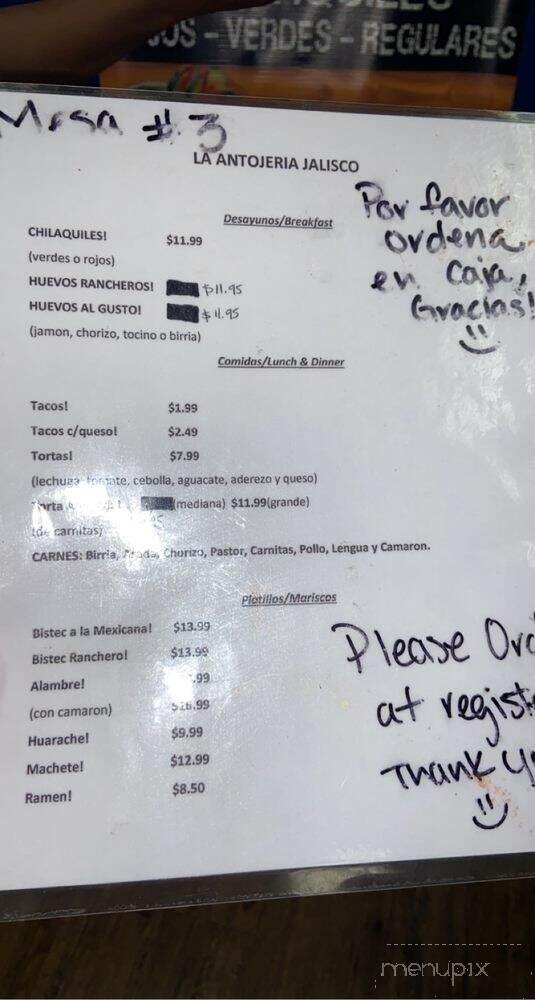 - VERDES - REGULARES
Mesa # 3
LA ANTOJERIA JALISCO
Por favor
ordena
en caja,
Gracias!
Desayunos/Breakfast
CHILAQUILES! $11.99
(verdes o rojos)
HUEVOS RANCHEROS! $11.95
HUEVOS AL GUSTO! $11.95
(jamon, chorizo, tocino o birria)
Comidas/Lunch & Dinner
Tacos! $1.99
Tacos c/queso! $2.49
Tortas! $7.99
(lechuga, tomate, cebolla, aguacate, aderezo y queso)
Torta (mediana) $11.99(grande)
(de carnitas)
CARNES: Birria, Asada, Chorizo, Pastor, Carnitas, Pollo, Lengua y Camaron.
Platillos/Mariscos
Bistec a la Mexicana! $13.99
Bistec Ranchero! $13.99
Alambre! .99
(con camaron) .99
Huarache! $9.99
Machete! $12.99
Ramen! $8.50
Please Ord
at regist
Thank Y
menupix